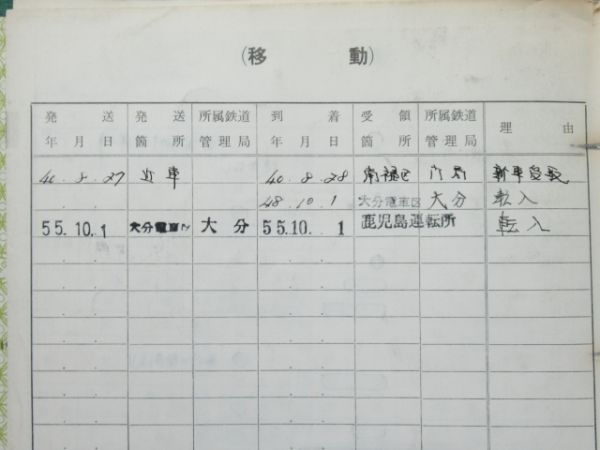 （移動）
発送年月日 発送箇所 所属鉄道管理局 到着年月日 受領箇所 所属鉄道管理局 理由
40.8.27 近車 40.8.28 南福区 門局 新車受領
48.10.1 大分電車区 大分 転入
55.10.1 大分電車区 大分 55.10.1 鹿児島運転所 転入